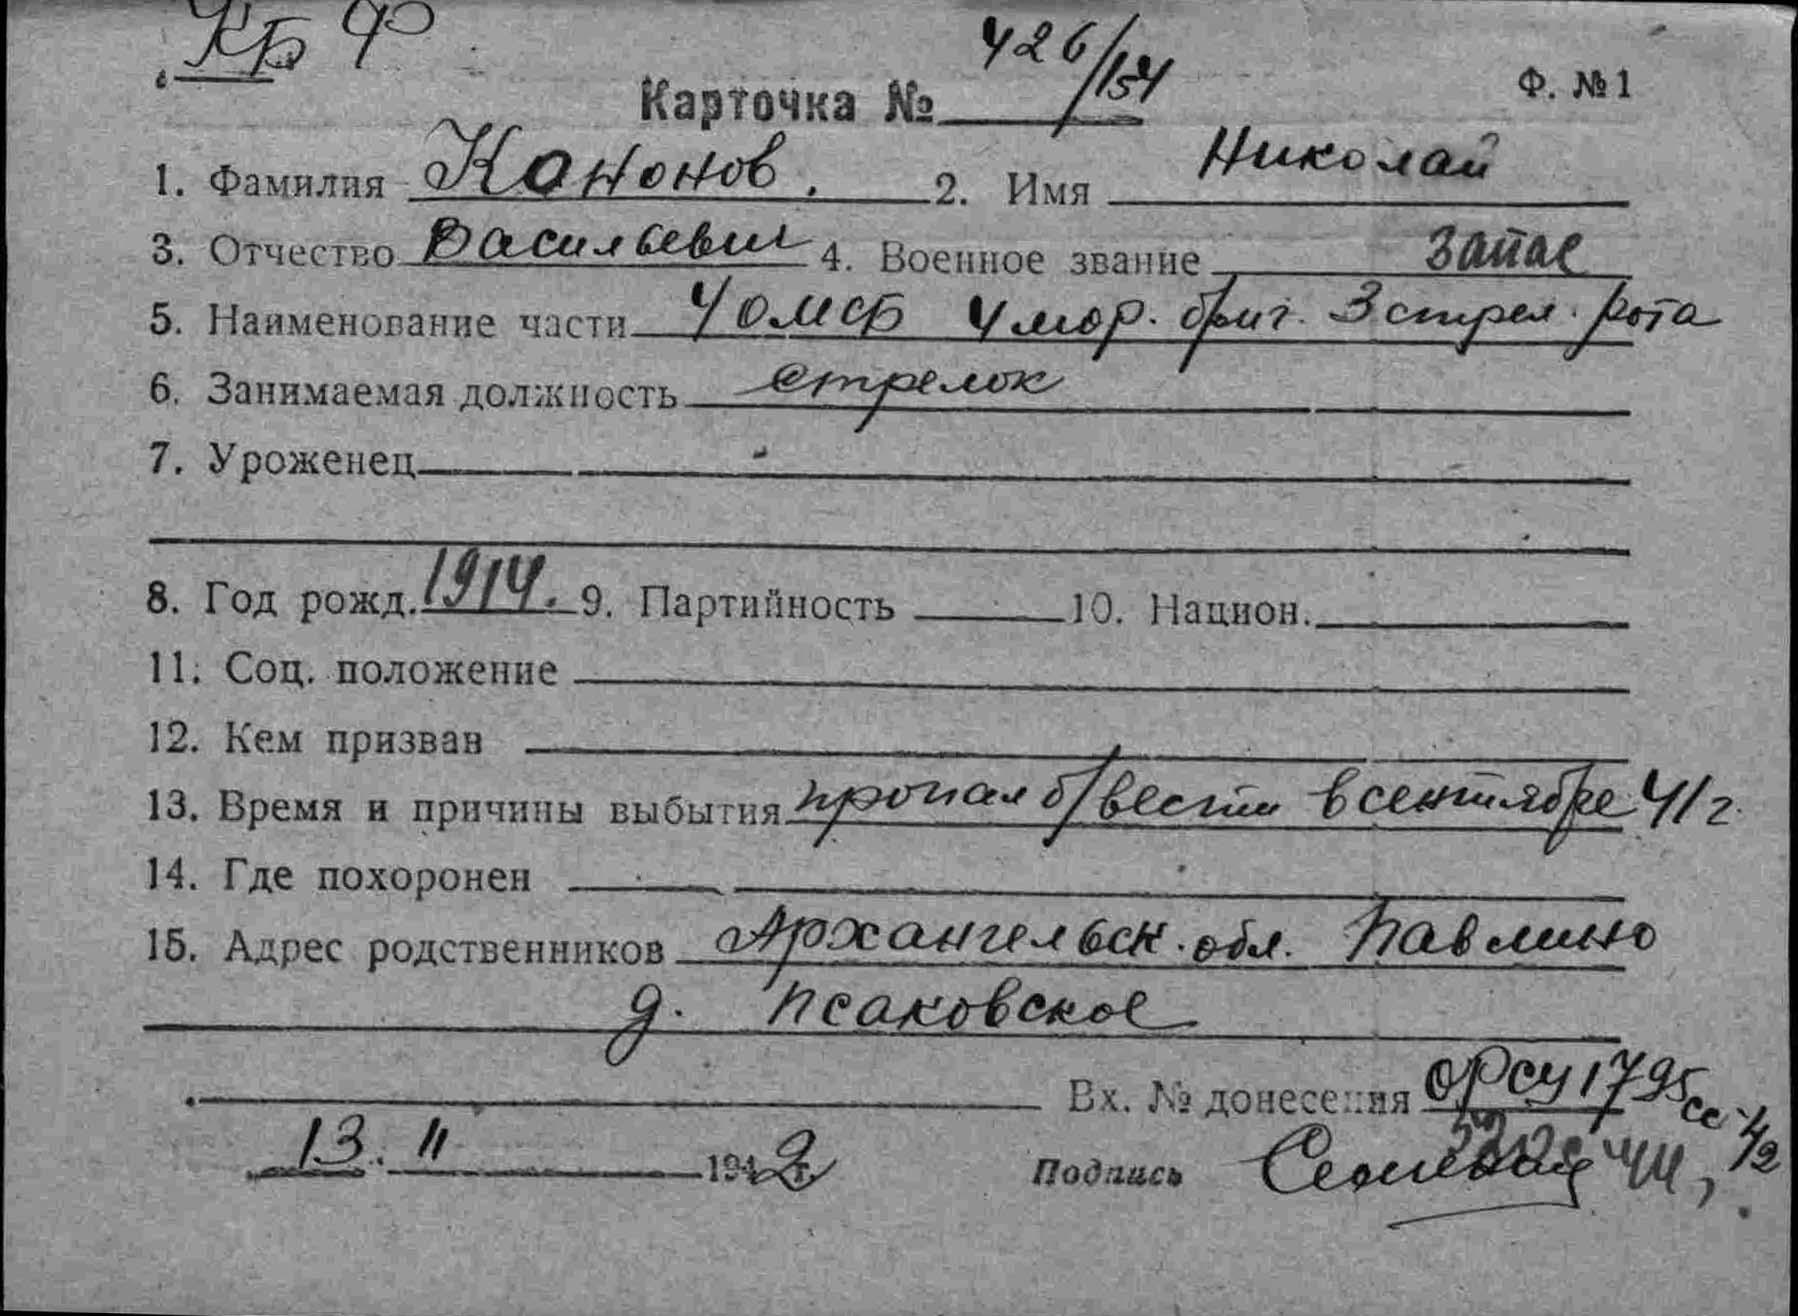 КБФ
Карточка № 426/154 Ф. №1
1. Фамилия Кононов. 2. Имя Николай
3. Отчество Васильевич 4. Военное звание запас
5. Наименование части 4 ОМСБ 4 мор. бриг. 3 стрел. рота
6. Занимаемая должность стрелок
7. Уроженец
8. Год рожд. 1914. 9. Партийность 10. Национ.
11. Соц. положение
12. Кем призван
13. Время и причины выбытия пропал б/вести в сентябре 41 г.
14. Где похоронен
15. Адрес родственников Архангельск. обл. Павлино
д. Исаковское
Вх. № донесения ОРСУ 1795
13. II 1942 Подпись